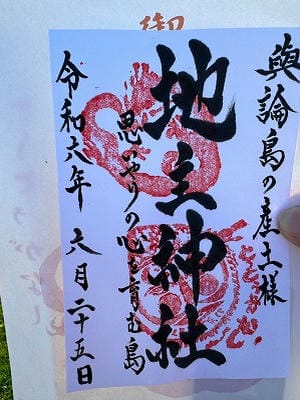 御
與論島の産土様
地主神社
思いやりの心を育む島
令和六年 六月二十五日